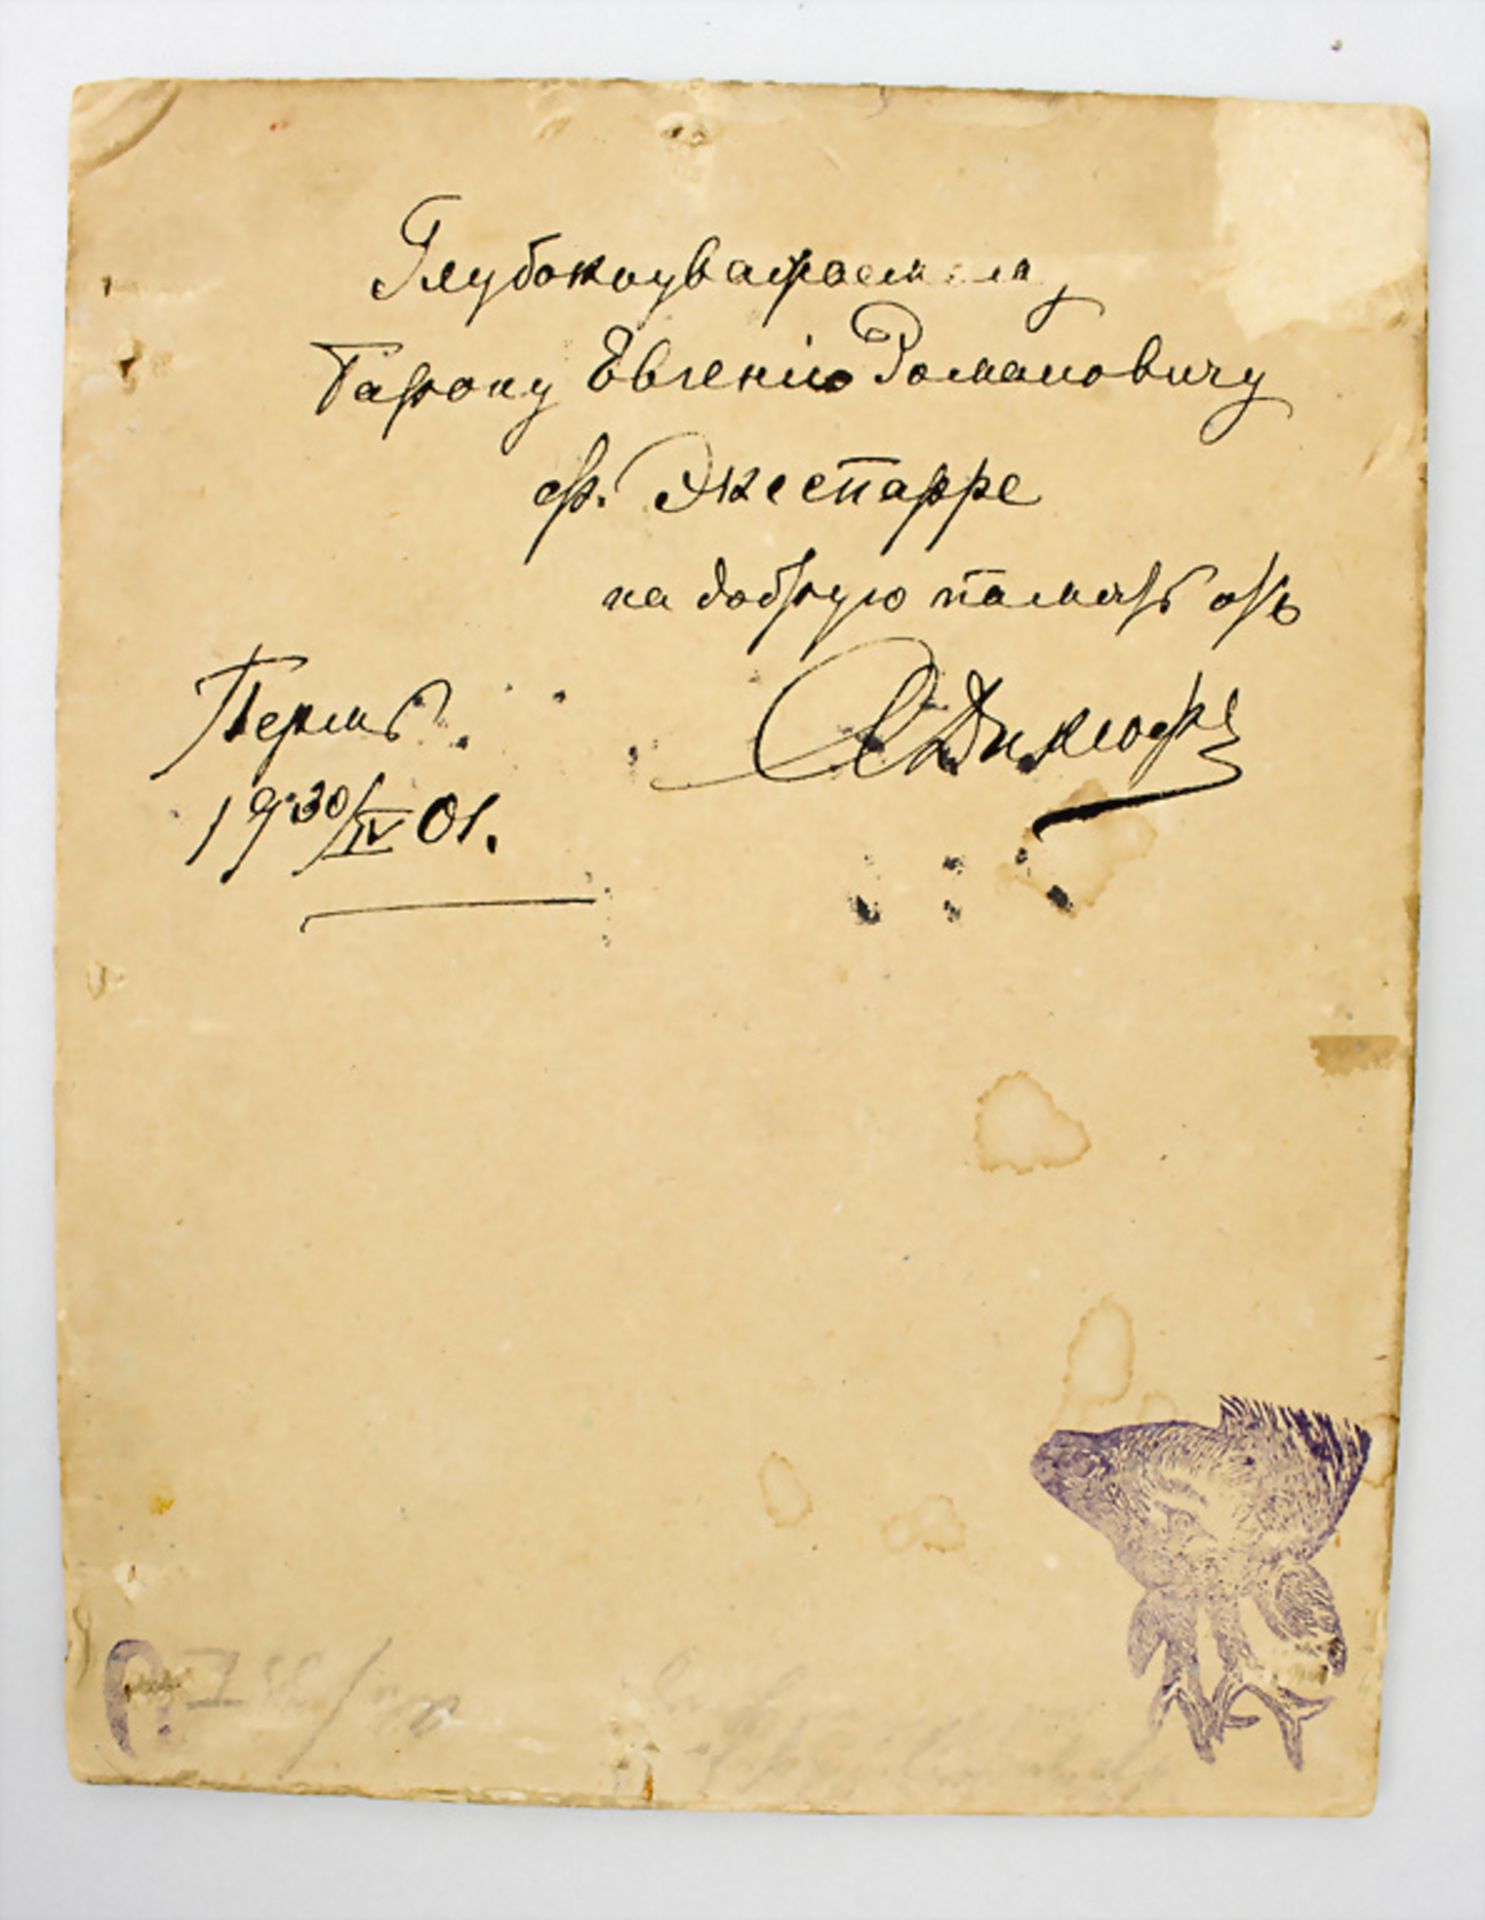 Глубокоуважаемому
Барону Евгенію Романовичу
ф. Экеспарре
на добрую память отъ
Пермь.
19 30/IV 01.